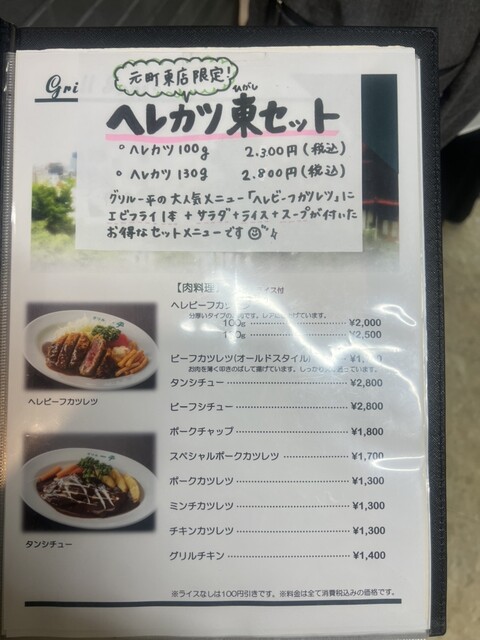 Gri
元町東店限定!
ひがし
ヘレカツ東セット
。ヘレカツ100g 2.300円(税込)
。ヘレカツ130g 2.800円(税込)
グリル一平の大人気メニュー「ヘレビーフカツレツ」に
エビフライ1本+サラダ+ライス+スープが付いた
お得なセットメニューです
【肉料理 ライス付
ヘレビーフカツレツ
100g ¥2,000
¥2,500
ビーフカツレツ(オールドスタイル)
お肉を薄く叩きのばして揚げています。
タンシチュー ¥2,800
ビーフシチュー ¥2,800
ポークチャップ ¥1,800
スペシャルポークカツレツ ¥1,700
ポークカツレツ ¥1,300
ミンチカツレツ ¥1,300
チキンカツレツ ¥1,300
グリルチキン ¥1,400
ヘレビーフカツレツ
タンシチュー
※ライスなしは100円引きです。※料金は全て消費税込みの価格です。